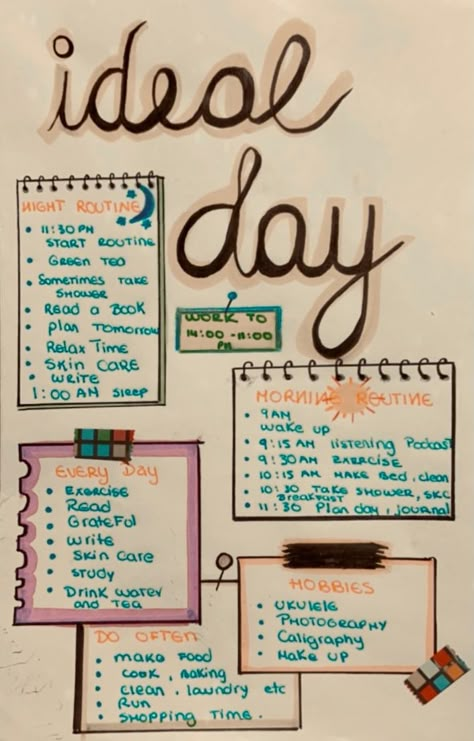 ideal
day
NIGHT ROUTINE
11:30 PM
START ROUTINE
GREEN TEA
SOMETIMES TAKE
SHOWER
READ A BOOK
PLAN TOMORROW
RELAX TIME
SKIN CARE
WRITE
1:00 AM SLEEP
WORK TO
14:00 - 11:00
PM
MORNING ROUTINE
9AM
WAKE UP
9:15 AM listening Podcast
9:30 AM EXERCISE
10:15 AM MAKE BED, clean
10:30 TAKE SHOWER, SKC
BREAKFAST
11:30 Plan day, journal
EVERY DAY
EXERCISE
Read
GrateFul
Write
Skin Care
STUDY
Drink Water
and TEA
HOBBIES
UKULELE
PHOTOGRAPHY
Caligraphy
Make UP
DO OFTEN
MAKE FOOD
COOK, BAKING
Clean, laundry etc
RUN
SHOPPING TIME.